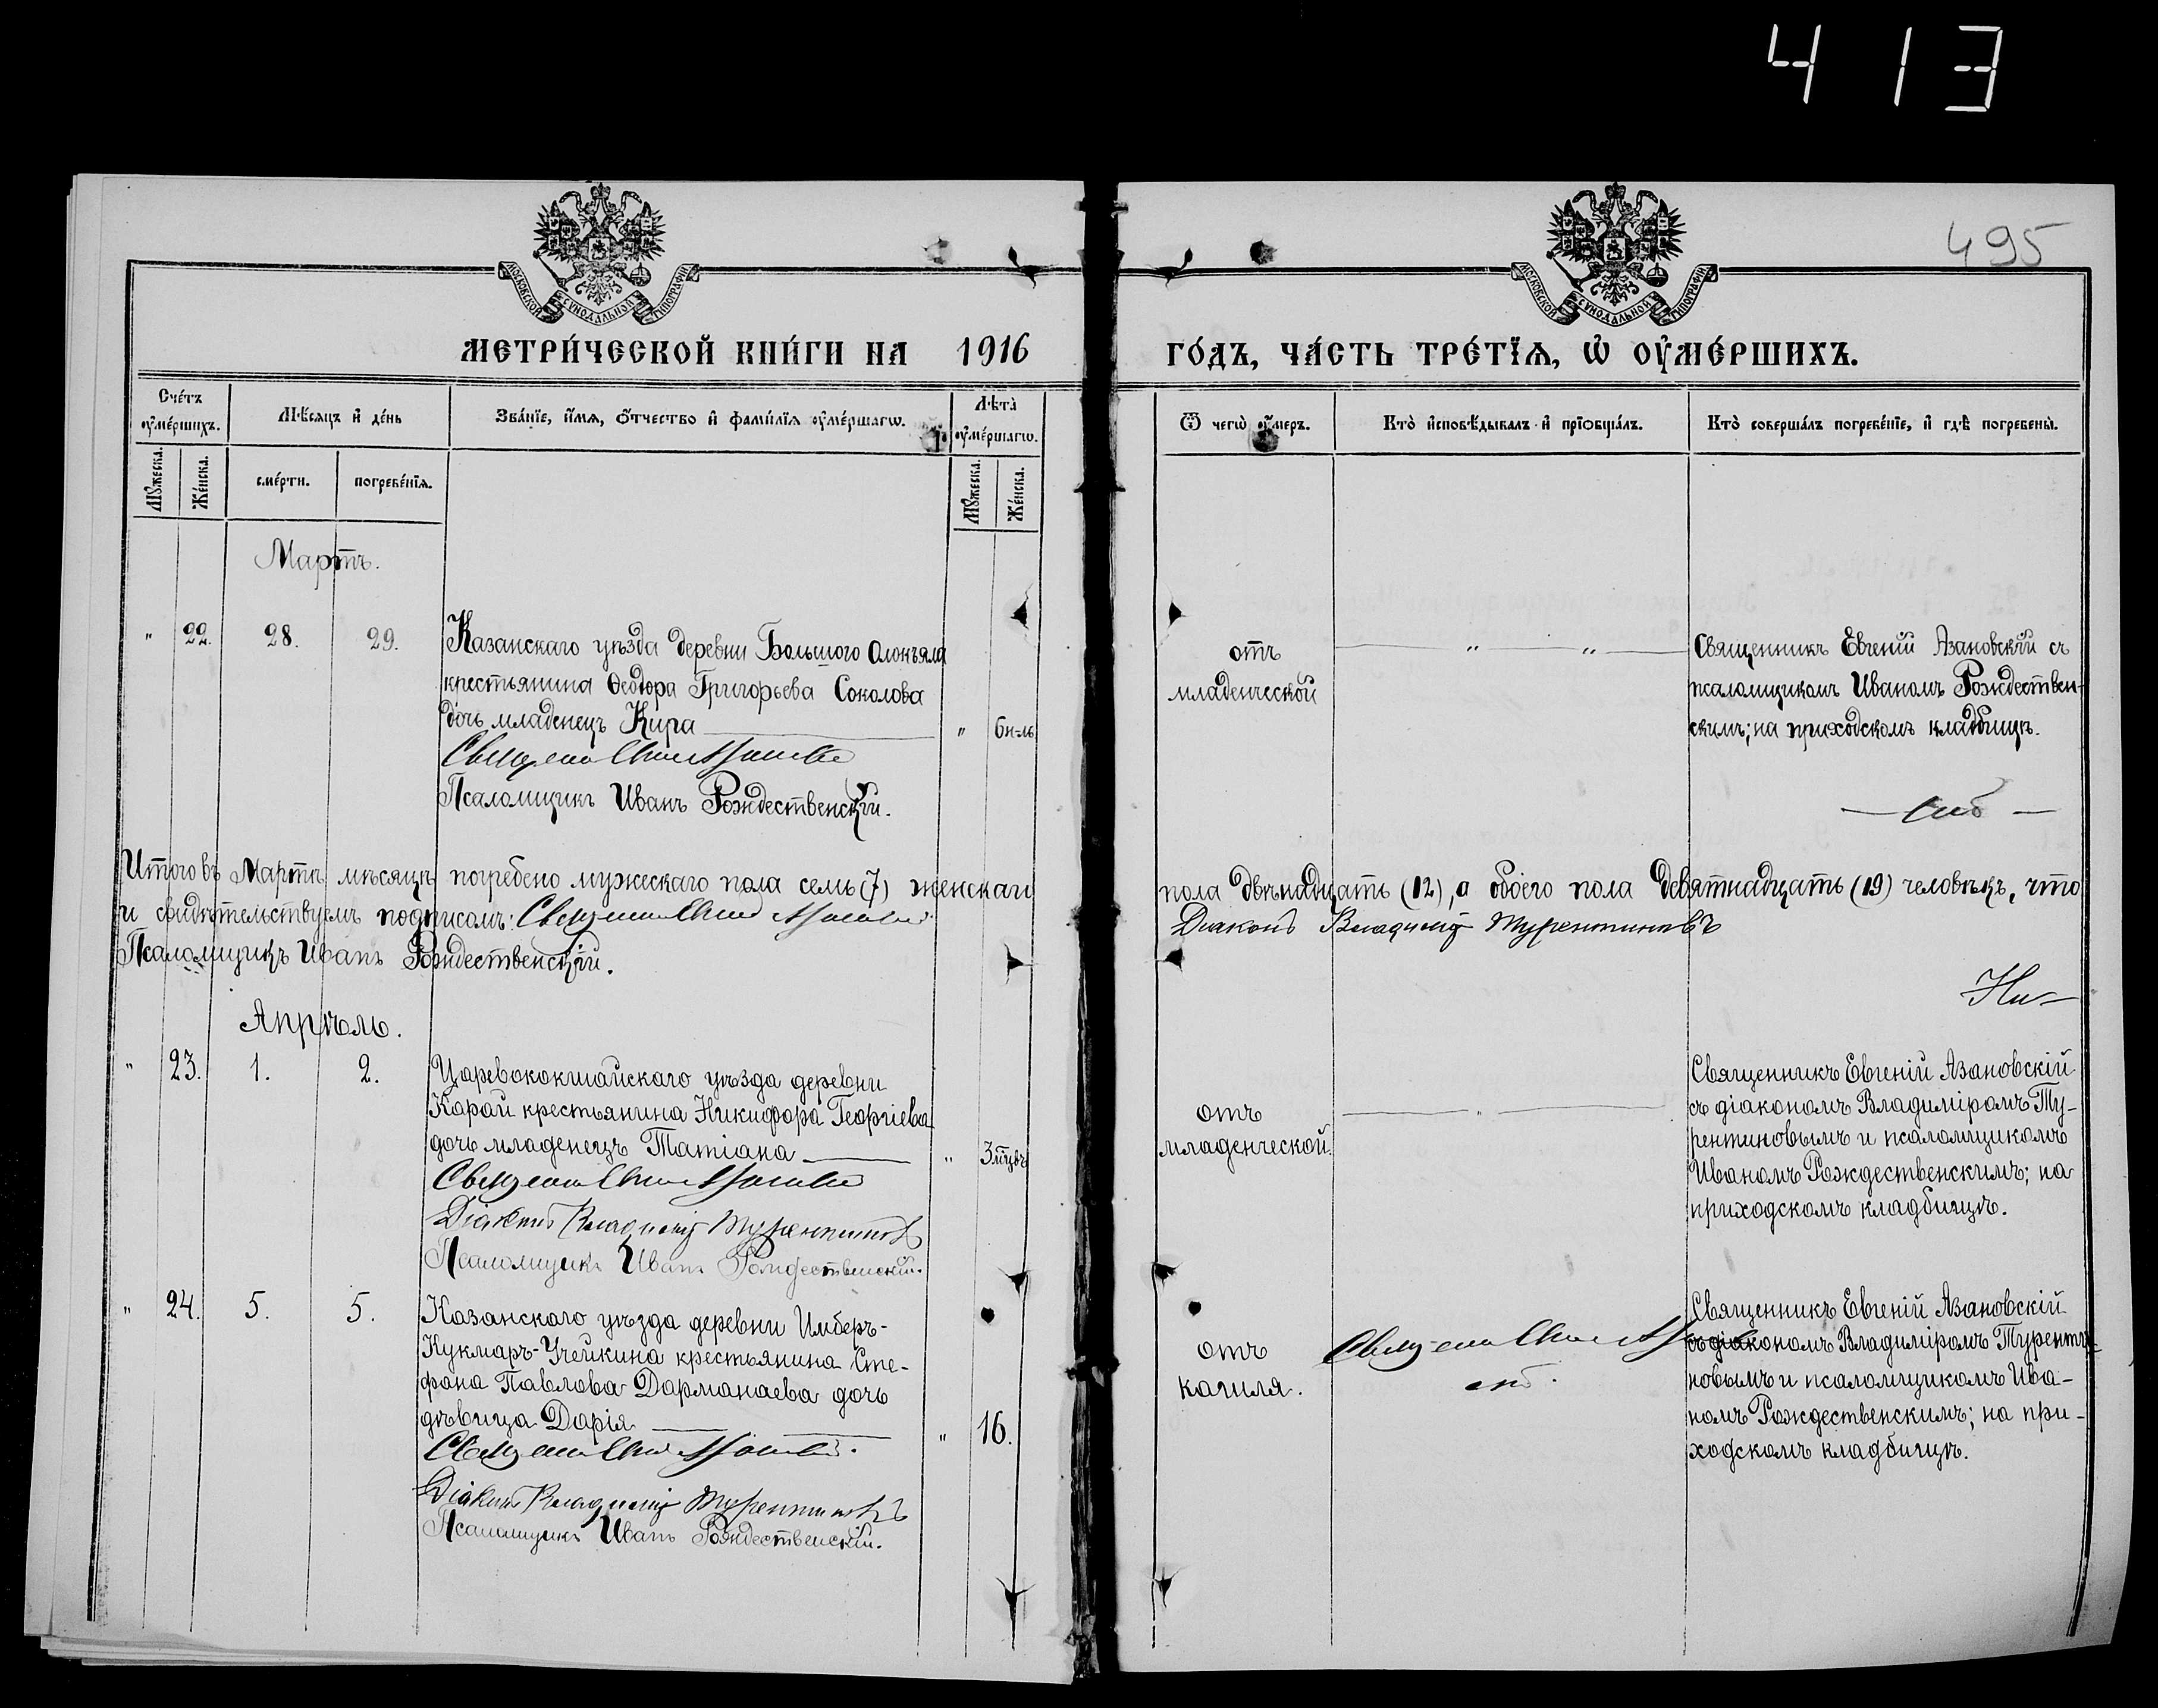 413
495
МОСКОВСКОЙ СѴНОДАЛЬНОЙ ТИПОГРАФІИ
МОСКОВСКОЙ СѴНОДАЛЬНОЙ ТИПОГРАФІИ
МЕТРИ́ЧЕСКОЙ КНИ́ГИ НА 1916
ГО́ДЪ, ЧА́СТЬ ТРЕ́ТЇѦ, Ѡ҆ ОУ҆МЕ́РШИХЪ.
Сче́тъ оу҆ме́ршихъ.
Мѣ́сяцъ и҆ де́нь
Зва́нїе, и҆́мѧ, ѻ҆́тчество и҆ фами́лїѧ оу҆ме́ршагѡ.
Лѣта̀ оу҆ме́ршагѡ.
Ѿ чегѡ̀ оу҆́меръ.
Кто̀ и҆сповѣ́дывалъ и҆ прїѡбща́лъ.
Кто̀ соверша́лъ погребе́нїе, и҆ гдѣ̀ погребены̀.
Мꙋ́жеска.
Же́нска.
сме́рти.
погребе́нїѧ.
Мꙋ́жеска.
Же́нска.
Мартъ.
" 22. 28. 29. Казанскаго уѣзда деревни Большого Олокъяла
крестьянина Ѳеодора Григорьева Соколова
дочь младенецъ Кира " 6н-ль
Псаломщикъ Иванъ Рождественскій.
отъ
младенческой
" "
Священникъ Евгеній Азановскій съ
псаломщикомъ Иваномъ Рождествен-
скимъ; на приходскомъ кладбищѣ.
Итого въ Мартѣ мѣсяцѣ погребено мужескаго пола семь (7) женскаго
пола двѣнадцать (12), а обоего пола девятнадцать (19) человѣкъ, что
и свидѣтельствуемъ подписомъ:
Діаконъ Владиміръ Турентиновъ
Псаломщикъ Иванъ Рождественскій.
Апрѣль.
" 23. 1. 2. Царевококшайскаго уѣзда деревни
Карай крестьянина Никифора Георгіева
дочь младенецъ Татіана " 3мцвъ
Діаконъ Владиміръ Турентиновъ
Псаломщикъ Иванъ Рождественскій.
отъ
младенческой.
"
Священникъ Евгеній Азановскій
съ діакономъ Владиміромъ Ту-
рентиновымъ и псаломщикомъ
Иваномъ Рождественскимъ; на
приходскомъ кладбищѣ.
" 24. 5. 5. Казанскаго уѣзда деревни Имберъ-
Кукмаръ-Учейкина крестьянина Сте-
фана Павлова Дарманаева дочь
дѣвица Дарія " 16.
Діаконъ Владиміръ Турентиновъ
Псаломщикъ Иванъ Рождественскій.
отъ
кашля.
Священникъ Евгеній Азановскій
съ діакономъ Владиміромъ Туренти-
новымъ и псаломщикомъ Ива-
номъ Рождественскимъ; на при-
ходскомъ кладбищѣ.